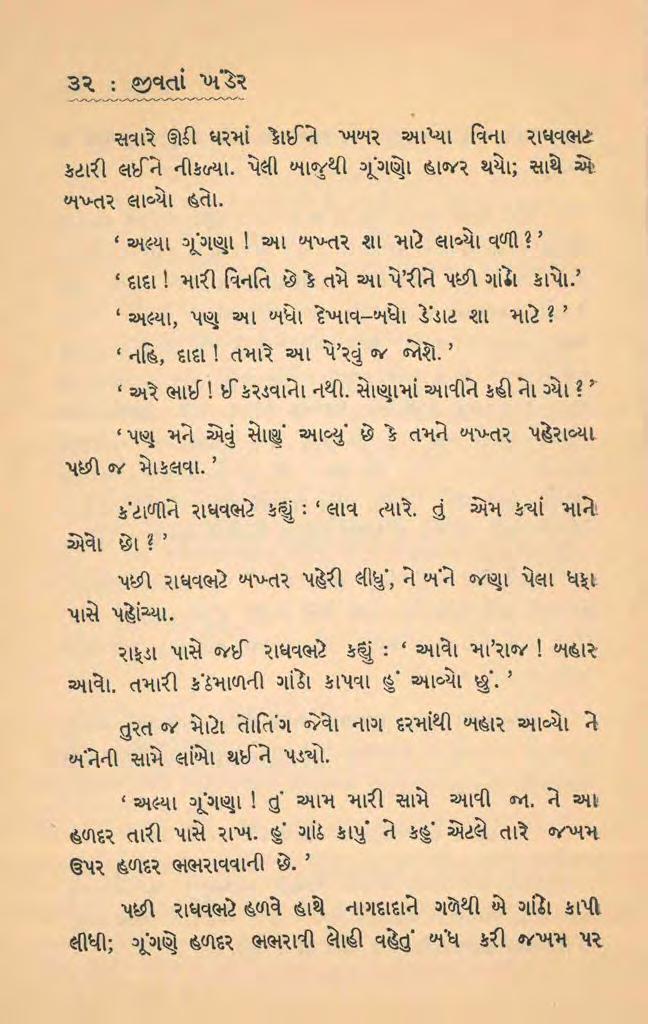 ૩૨ : જીવતાં ખંડેર
સવારે ઊઠી ઘરમાં કોઈને ખબર આપ્યા વિના રાઘવભટ
કટારી લઈને નીકળ્યા. પેલી બાજુથી ગૂંગણો હાજર થયો; સાથે એ
બખ્તર લાવ્યો હતો.
‘ અલ્યા ગૂંગણા ! આ બખ્તર શા માટે લાવ્યો વળી ? ’
‘ દાદા ! મારી વિનતિ છે કે તમે આ પે’રીને પછી ગાંઠો કાપો.’
‘ અલ્યા, પણ આ બધો દેખાવ–બધો ડેંડાટ શા માટે ? ’
‘ નહિ, દાદા ! તમારે આ પે’રવું જ જોશે. ’
‘ અરે ભાઈ ! ઈ કરડવાનો નથી. સોણામાં આવીને કહી નો ગ્યો ? ’
‘ પણ મને એવું સોણું આવ્યું છે કે તમને બખ્તર પહેરાવ્યા
પછી જ મોકલવા. ’
કંટાળીને રાઘવભટે કહ્યું : ‘ લાવ ત્યારે. તું એમ ક્યાં માને
એવો છો ? ’
પછી રાઘવભટે બખ્તર પહેરી લીધું, ને બંને જણા પેલા ધફા
પાસે પહોંચ્યા.
રાફડા પાસે જઈ રાઘવભટે કહ્યું : ‘ આવો મા’રાજ ! બહાર
આવો. તમારી કંઠમાળની ગાંઠો કાપવા હું આવ્યો છું. ’
તુરત જ મોટો તોતિંગ જેવો નાગ દરમાંથી બહાર આવ્યો ને
બંનેની સામે લાંબો થઈને પડ્યો.
‘ અલ્યા ગૂંગણા ! તું આમ મારી સામે આવી જા. ને આ
હળદર તારી પાસે રાખ. હું ગાંઠ કાપું ને કહું એટલે તારે જખમ
ઉપર હળદર ભભરાવવાની છે. ’
પછી રાઘવભટે હળવે હાથે નાગદાદાને ગળેથી બે ગાંઠો કાપી
લીધી; ગૂંગણે હળદર ભભરાવી લોહી વહેતું બંધ કરી જખમ પર